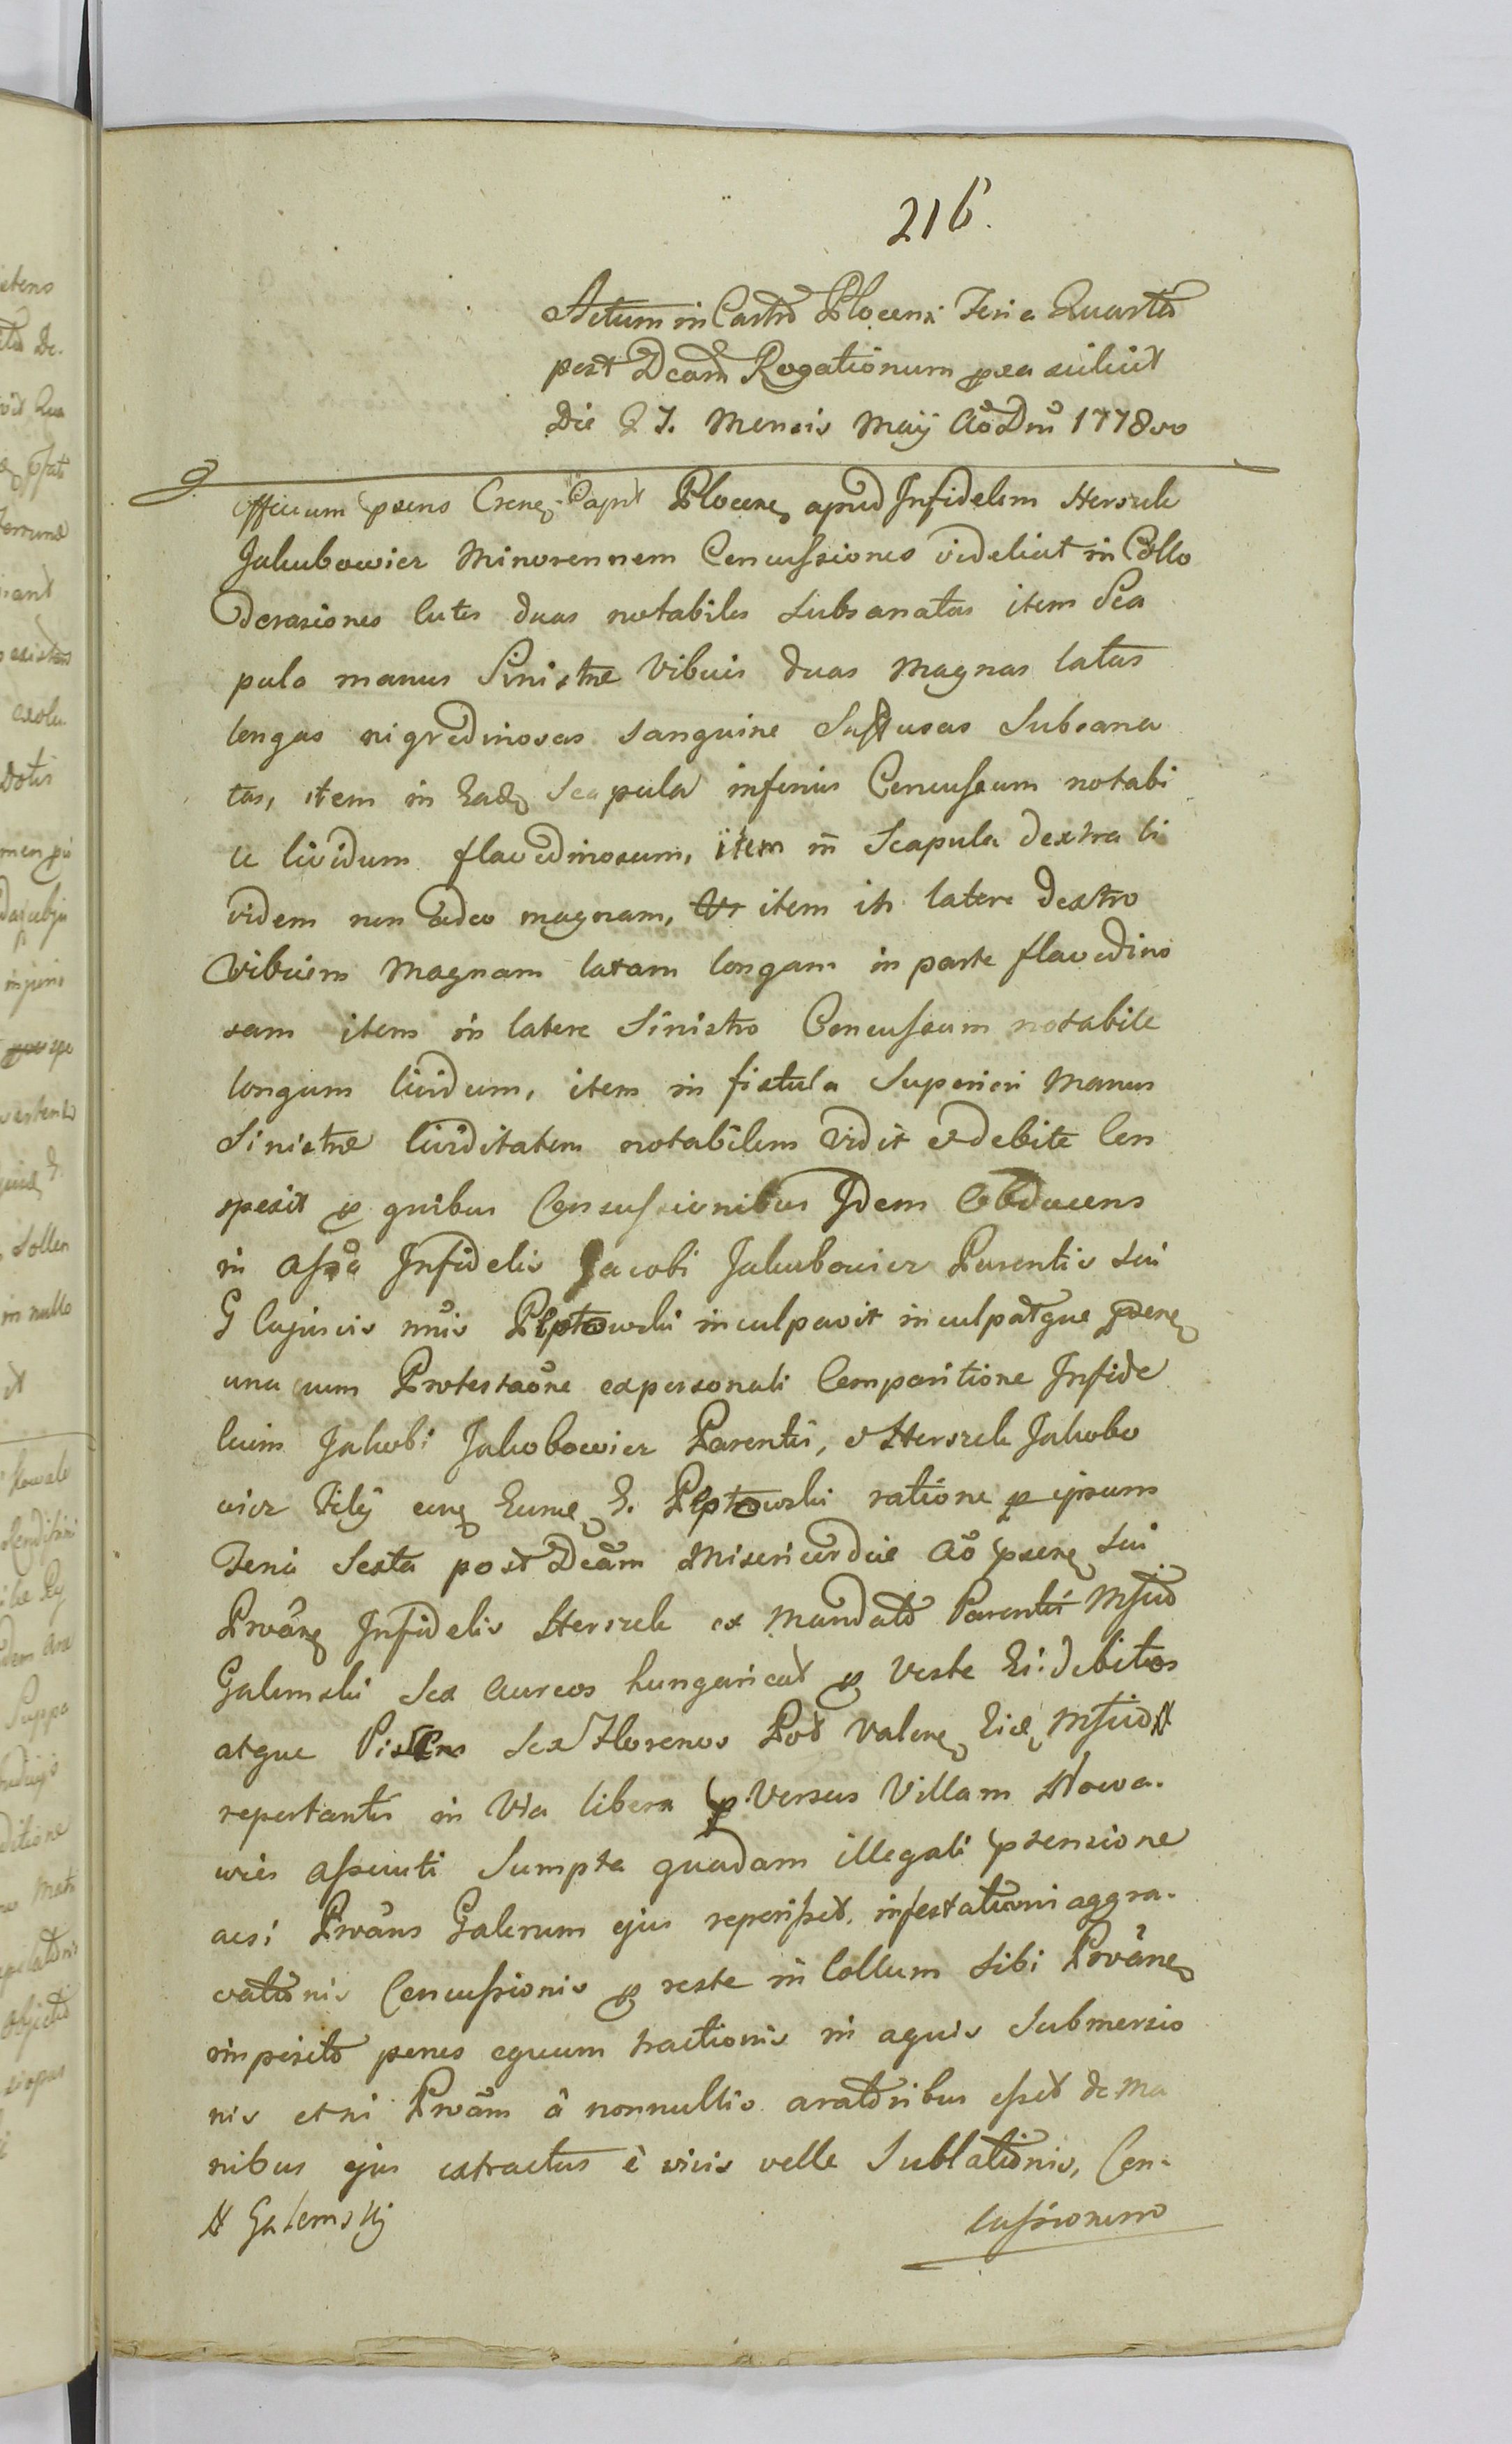 216.
Actum in Castro Plocensi Feria Quarta
post Dcam Rogationum pxa
Die 27. Mensis Maij Ao Dni 1778vo
Officium psens Crense Capit Plocens apud Infidelem Herszek
Jakubowicz Minorennem Concussiones videlicet in Collo
Derasiones cutis duas notabiles subsanatas item Sca
pula manus Sinistræ vibices duas magnas latas
longas nigredinosas sanguine suffusas Subsana
tas, item in Eadem Scapula inferius Concussum notabi
le lividum flavedinosum, item in Scapula dextra li
videm non adeo magnam, item in latere dextro
vibicem magnam latam longam in parte flavedino
sam item in latere Sinistro Concussum notabile
longum lividum, item in fistula Superiori Manus
Sinistræ lividitatem notabilem vidit et debite Con
spexit p quibus Concussionibus Idem Obducens
in assa Infidelis Jacobi Jakubowicz Parentis sui
G Cujusvis nnis Plptowski inculpavit inculpatque psens
una cum Protestaone ex personali Comparitione Infide
lium Jakobi Jakobowicz Parentis, et Herszek Jakobo
wicz Filij Eund G. Plptowski ratione p ipsum
Feria Sexta post Dcam Misericordiæ Ao psens sui
Prvans Infidelis Herszek ex Mandato Parentis Msud
Galemski Sex Aureos hungarical p Veste Ei debitos
atque Sex Florenos Pol valens Eid Msud #
reportantis in Via libera p Versus Villam Nowa.
wies assecuti Sumpta quadam illegali prtensione
acsi Prvans Galerum ejus reperisset, infestationi aggra.
vationis Concussionis p reste in Collum Sibi Prvans
imposito penes equum tractionis in aquis Submersio
nis et ni Prvans â nonnullis aratoribus esset de ma
nibus ejus extractus è vivis velle Sublationis, Con-
# Galemskij
cussionum